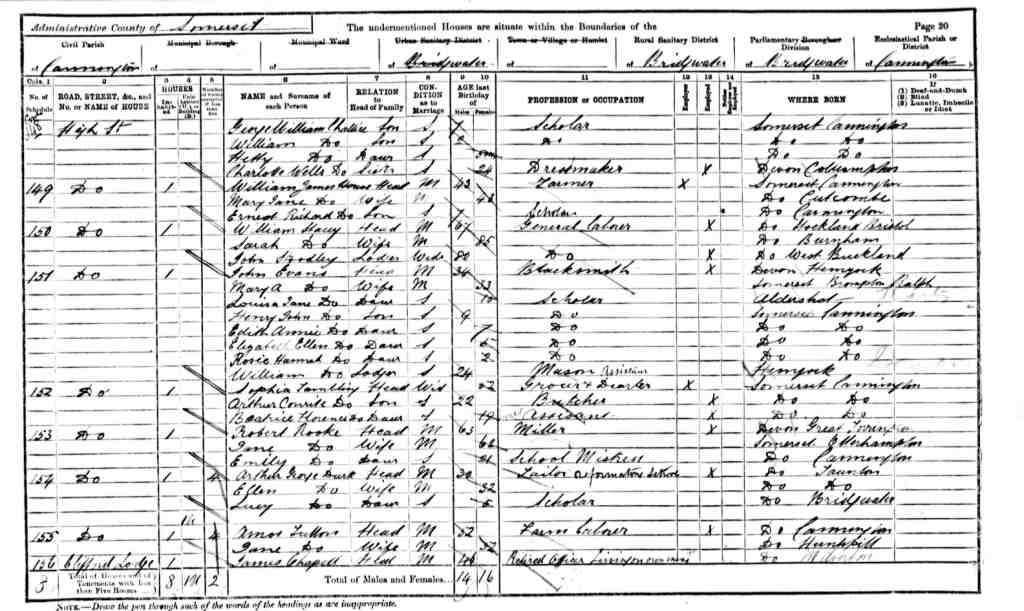 Administrative County of Somerset The undermentioned Houses are situate within the Boundaries of the Page 20
Civil Parish Municipal Borough Municipal Ward Urban Sanitary District Town or Village or Hamlet Rural Sanitary District Parliamentary Borough or Division Ecclesiastical Parish or District
of Cannington of of of Bridgwater of of Bridgwater of Bridgwater of Cannington
Cols. 1 2 3 4 5 6 7 8 9 10 11 12 13 14 15 16
No. of Schedule ROAD, STREET, &c., and No. or NAME of HOUSE HOUSES NAME and Surname of each Person RELATION to Head of Family CONDITION as to Marriage AGE last Birthday of Males Females PROFESSION or OCCUPATION Employer Employed WHERE BORN (1) Deaf-and-Dumb (2) Blind (3) Lunatic, Imbecile or Idiot
High St George William Son S 7 Scholar Somerset Cannington
William Do Son S Do Do Do
Hetty Do Daur S Do Do
Charlotte Wells Do S 24 Dressmaker X Devon
149 Do 1 William James House Head M 43 Farmer X Somerset Cannington
Mary Jane Do Wife 43 Do Cutcombe
Ernest Richard Do Son S 7 Scholar Do Cannington
150 Do 1 William Stacy Head M 67 General Laborer X Do Bristol
Sarah Do Wife M 85 Do Burnham
John Lodger Wido 80 Do X Do West Buckland
151 Do 1 John Evans Head M 34 Blacksmith X Devon Hemyock
Mary A Do Wife M 33 Somerset Brompton Ralph
Louisa Jane Do Daur S 10 Scholar Aldershot
Henry John Do Son S 9 Do Somerset Cannington
Edith Annie Do Daur S 7 Do Do Do
Elizabeth Ellen Do Daur S 5 Do Do Do
Rosie Hannah Do Daur S 2 Do Do Do
William Do Lodger S 24 Mason Assistant Hemyock
152 Do 1 Sophia Head Wid 52 Grocer & Draper X Somerset Cannington
Arthur Do Son S 22 Butcher X Do Do
Beatrice Florence Do Daur S 19 Assistant X Do Do
153 Do 1 Robert Rooke Head M 63 Miller X Devon Great
Jane Do Wife M 62 Somerset
Emily Do Daur S 21 School Mistress Do Cannington
154 Do 1 4 Arthur George Head M 30 Tailor Reformatory School X Do Taunton
Ellen Do Wife M 32 Do Do
Lucy Do Daur S 5 Scholar Do Bridgwater
155 Do 1 4 Amos Head M 52 Farm Laborer X Do Cannington
Jane Do Wife M 52 Do Huntspill
156 Clifford Lodge 1 James Head M Retired Officer Living on own means Do
3 Total of Houses and of Tenements with less than Five Rooms 8 2 Total of Males and Females... 14 16
NOTE.—Draw the pen through such of the words of the headings as are inappropriate.